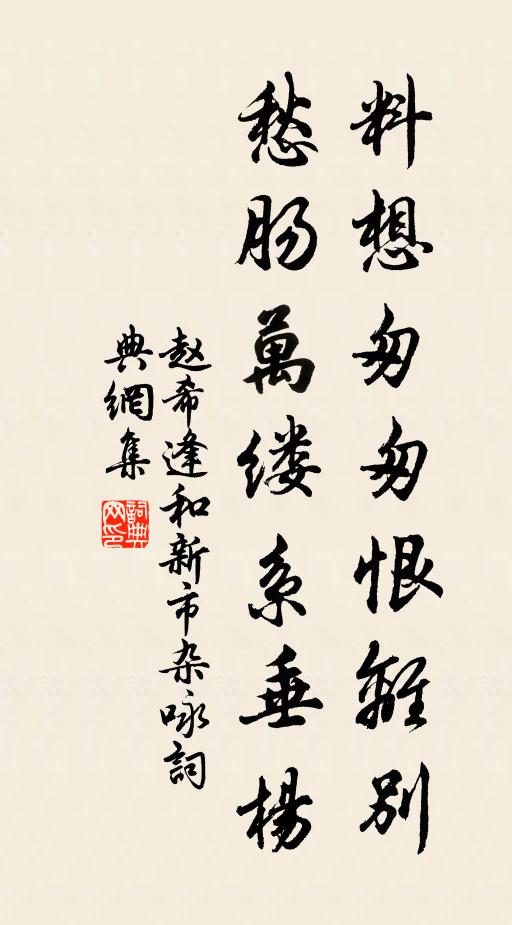 料想匆匆恨離别
愁肠萬缕系垂楊
赵希逢和新市杂咏詞
典網集
詞典
网印